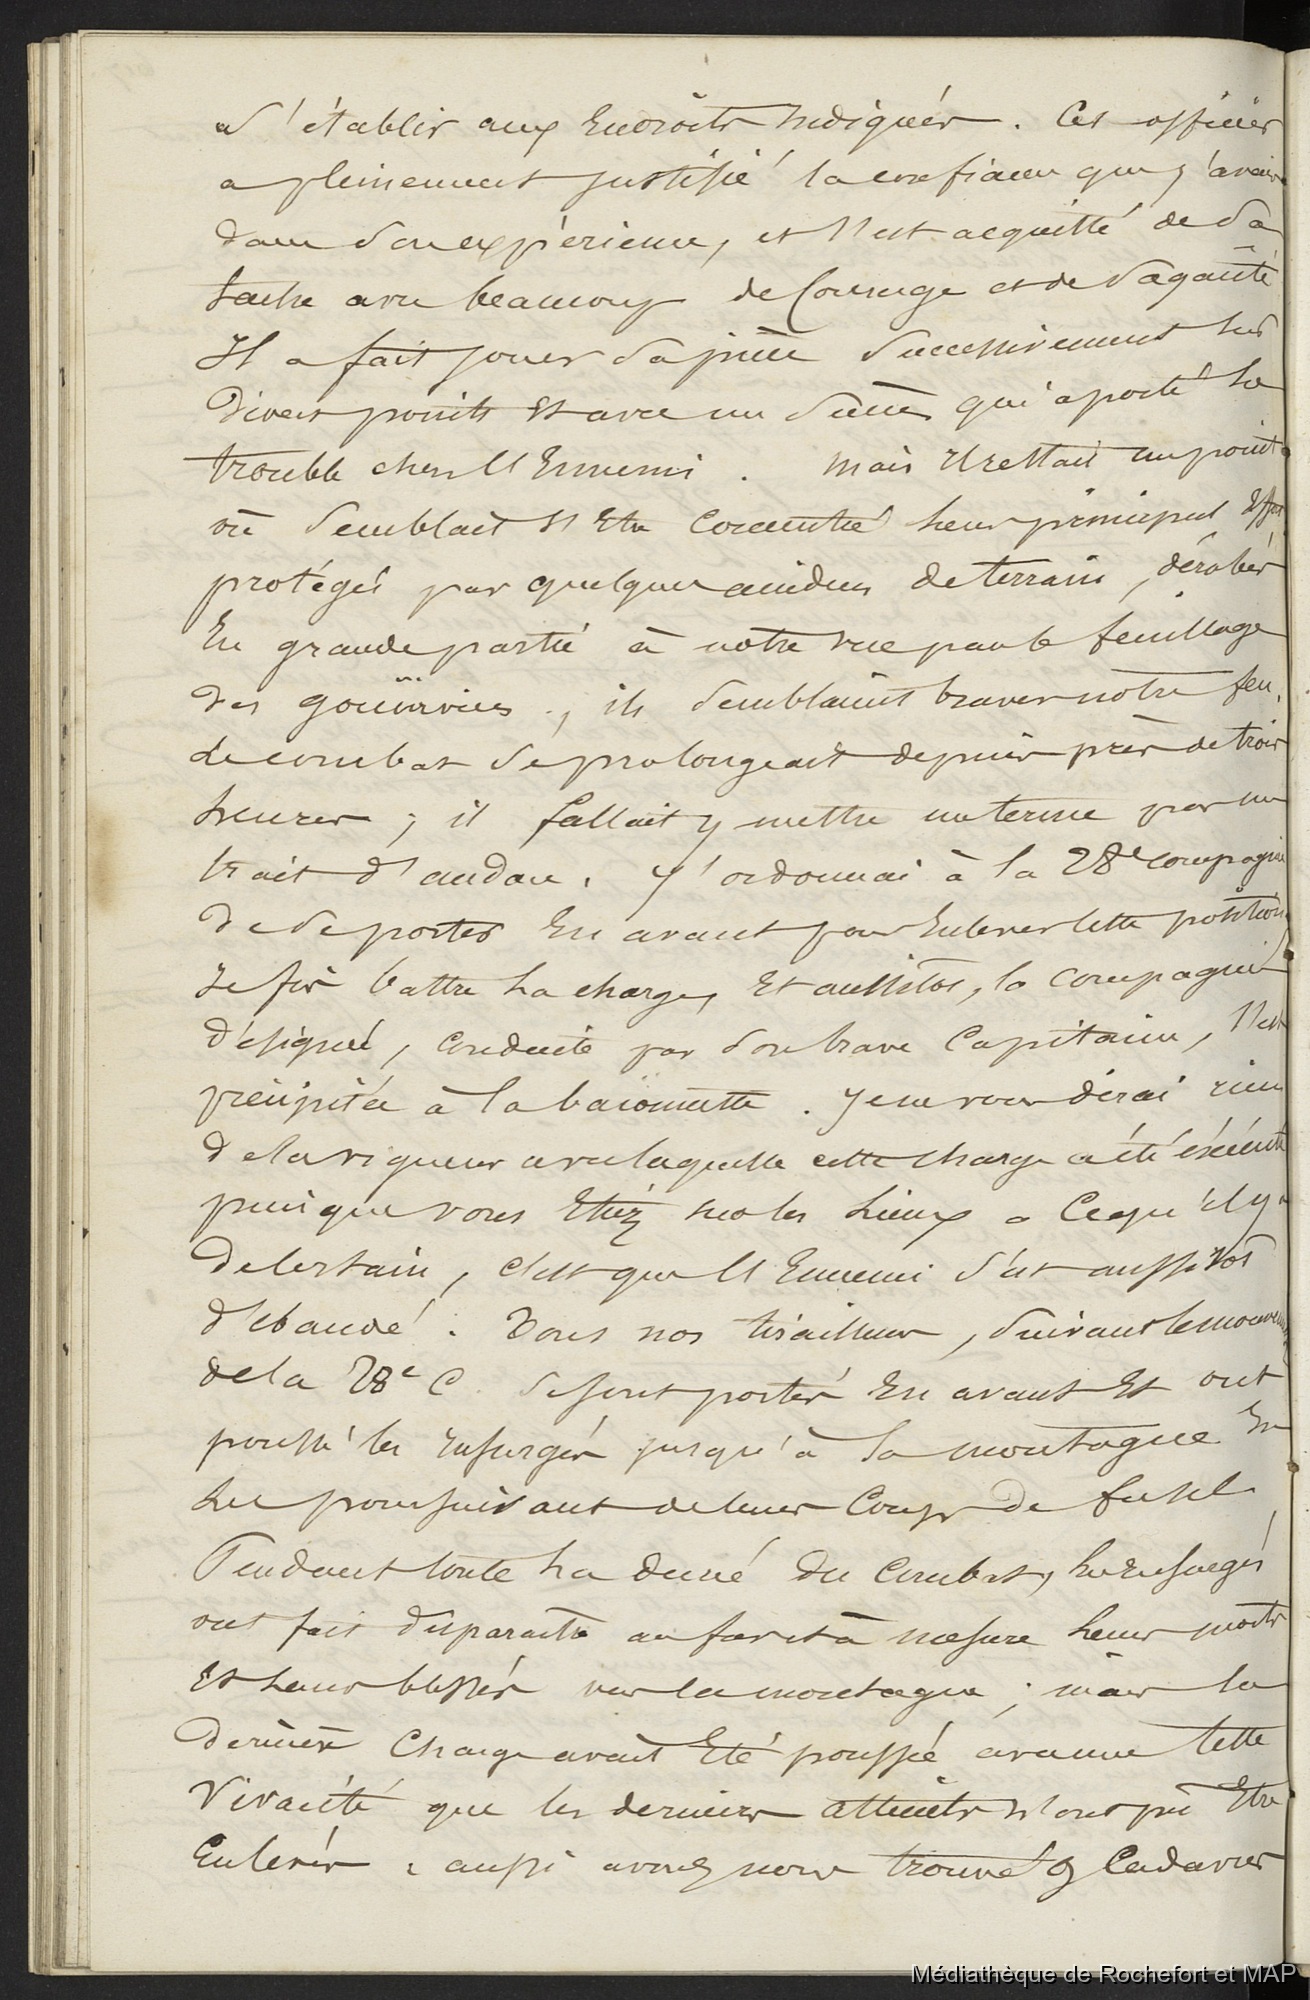 à s'établir aux Endroits Indiqués. Cet officier
a pleinement justifié la confiance que j'avais
dans son expérience, et s'est acquitté de sa
tache avec beaucoup de Courage et de sagacité
Il a fait jouer sa pièce successivement sur
divers points Et avec un succès qui a porté Le
trouble chez l'Ennemi. Mais il restait un point
où semblait s'Etre concentré Leur principal Effort
protégés par quelques accidens de terrain, dérobés
En grande partie à notre vue par le feuillage
des goüiviers, ils semblaient braver notre feu.
Le combat se prolongeait depuis près de trois
heures; il fallait y mettre un terme par un
trait d'audace. J'ordonnai à la 28e compagnie
de se porter En avant pour Enlever Cette position
Je fis battre La charge, Et aussitôt, la compagnie
désignée, conduite par son brave Capitaine, s'est
précipitée à la baionnette. Je ne vous dirai rien
de la vigueur avec laquelle cette charge a été éxécutée
puisque vous Etiez sur les Lieux. Ce qu'il y a
de Certain, c'est que l'Ennemi s'est aussitôt
débandé. Tous nos tirailleurs, suivant le mouvement
de la 28e C. se sont portés En avant Et ont
poussé les Insurgés jusqu'à la montagne En
Les poursuivant de leurs Coups de fusil
Pendant toute La durée du Combat, Les Insurgés
ont fait disparaitre au fur et à mesure Leurs morts
Et Leurs blessés vers la montagne; mais la
dernière Charge avait Eté poussée avec une telle
Vivacité que les derniers atteints n'ont pu Etre
Enlevés. aussi avons nous trouvé 9 Cadavres
Médiathèque de Rochefort et MAP